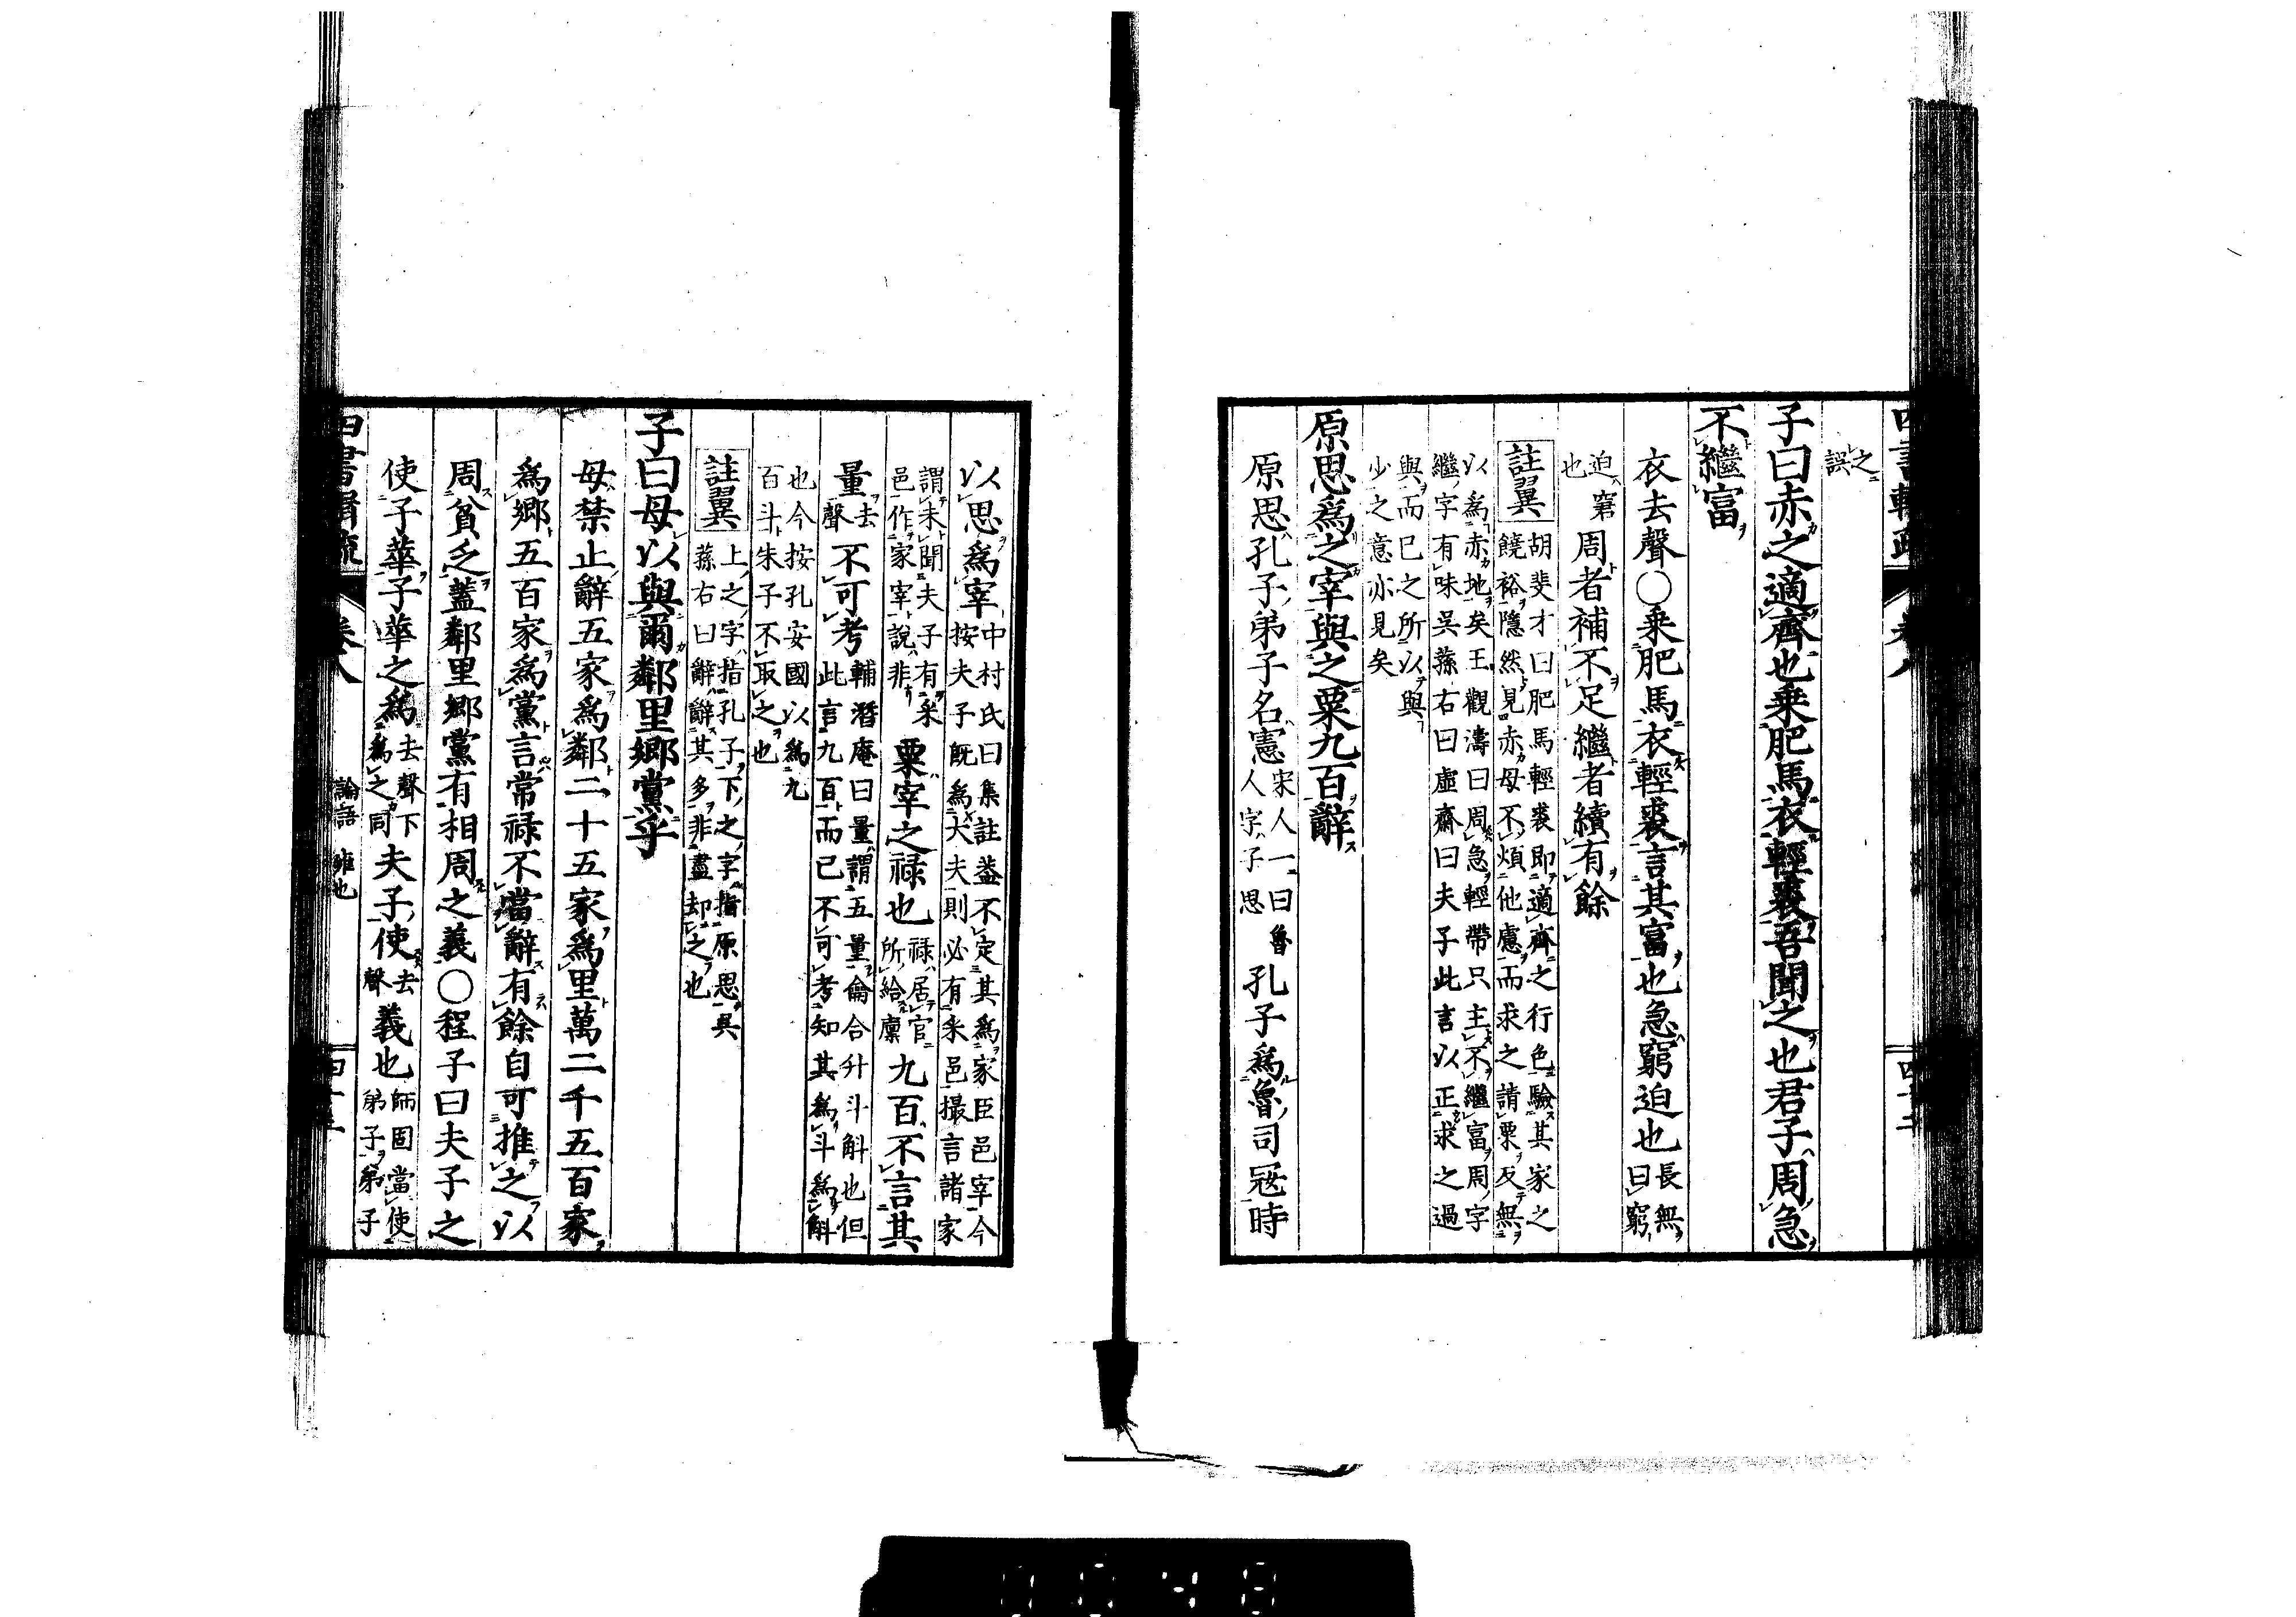 四書輯疏 卷八 四十二
之誤
子曰赤之適齊也乘肥馬衣輕裘吾聞之也君子周急
不繼富
衣去聲〇乘肥馬衣輕裘言其富也急窮迫也長無曰窮
迫窘也周者補不足繼者續有餘
註翼 胡斐才曰肥馬輕裘即適齊之行色驗其家之饒裕隱然見赤母不煩他慮而求之請粟反無
以爲赤地矣王觀濤曰周急輕帶只主不繼富周字繼字有味吳蓀右曰虛齋曰夫子此言以正求之過
與而已之所以與少之意亦見矣
原思爲之宰與之粟九百辭
原思孔子弟子名憲宋人一曰魯人字子思孔子爲魯司寇時
以思爲宰中村氏曰集註蓋不定其爲家臣邑宰今按夫子既爲大夫則必有采邑撮言諸家
謂未聞夫子有采邑作家宰說非粟宰之祿也祿居官所給廩九百不言其
量去聲不可考輔潛庵曰量謂五量龠合升斗斛也但此言九百而已不可考知其爲斗爲斛
也今按孔安國以爲九百斗朱子不取之也
註翼 上之字指孔子下之字指原思吳蓀右曰辭辭其多非盡却之也
子曰毋以與爾鄰里鄉黨乎
毋禁止辭五家爲鄰二十五家爲里萬二千五百家
爲鄉五百家爲黨言常祿不當辭有餘自可推之以
周貧乏蓋鄰里鄉黨有相周之義〇程子曰夫子之
使子華子華之爲去聲下爲之同夫子使去聲義也師固當使弟子弟子
四書輯疏 卷八 論語 雍也